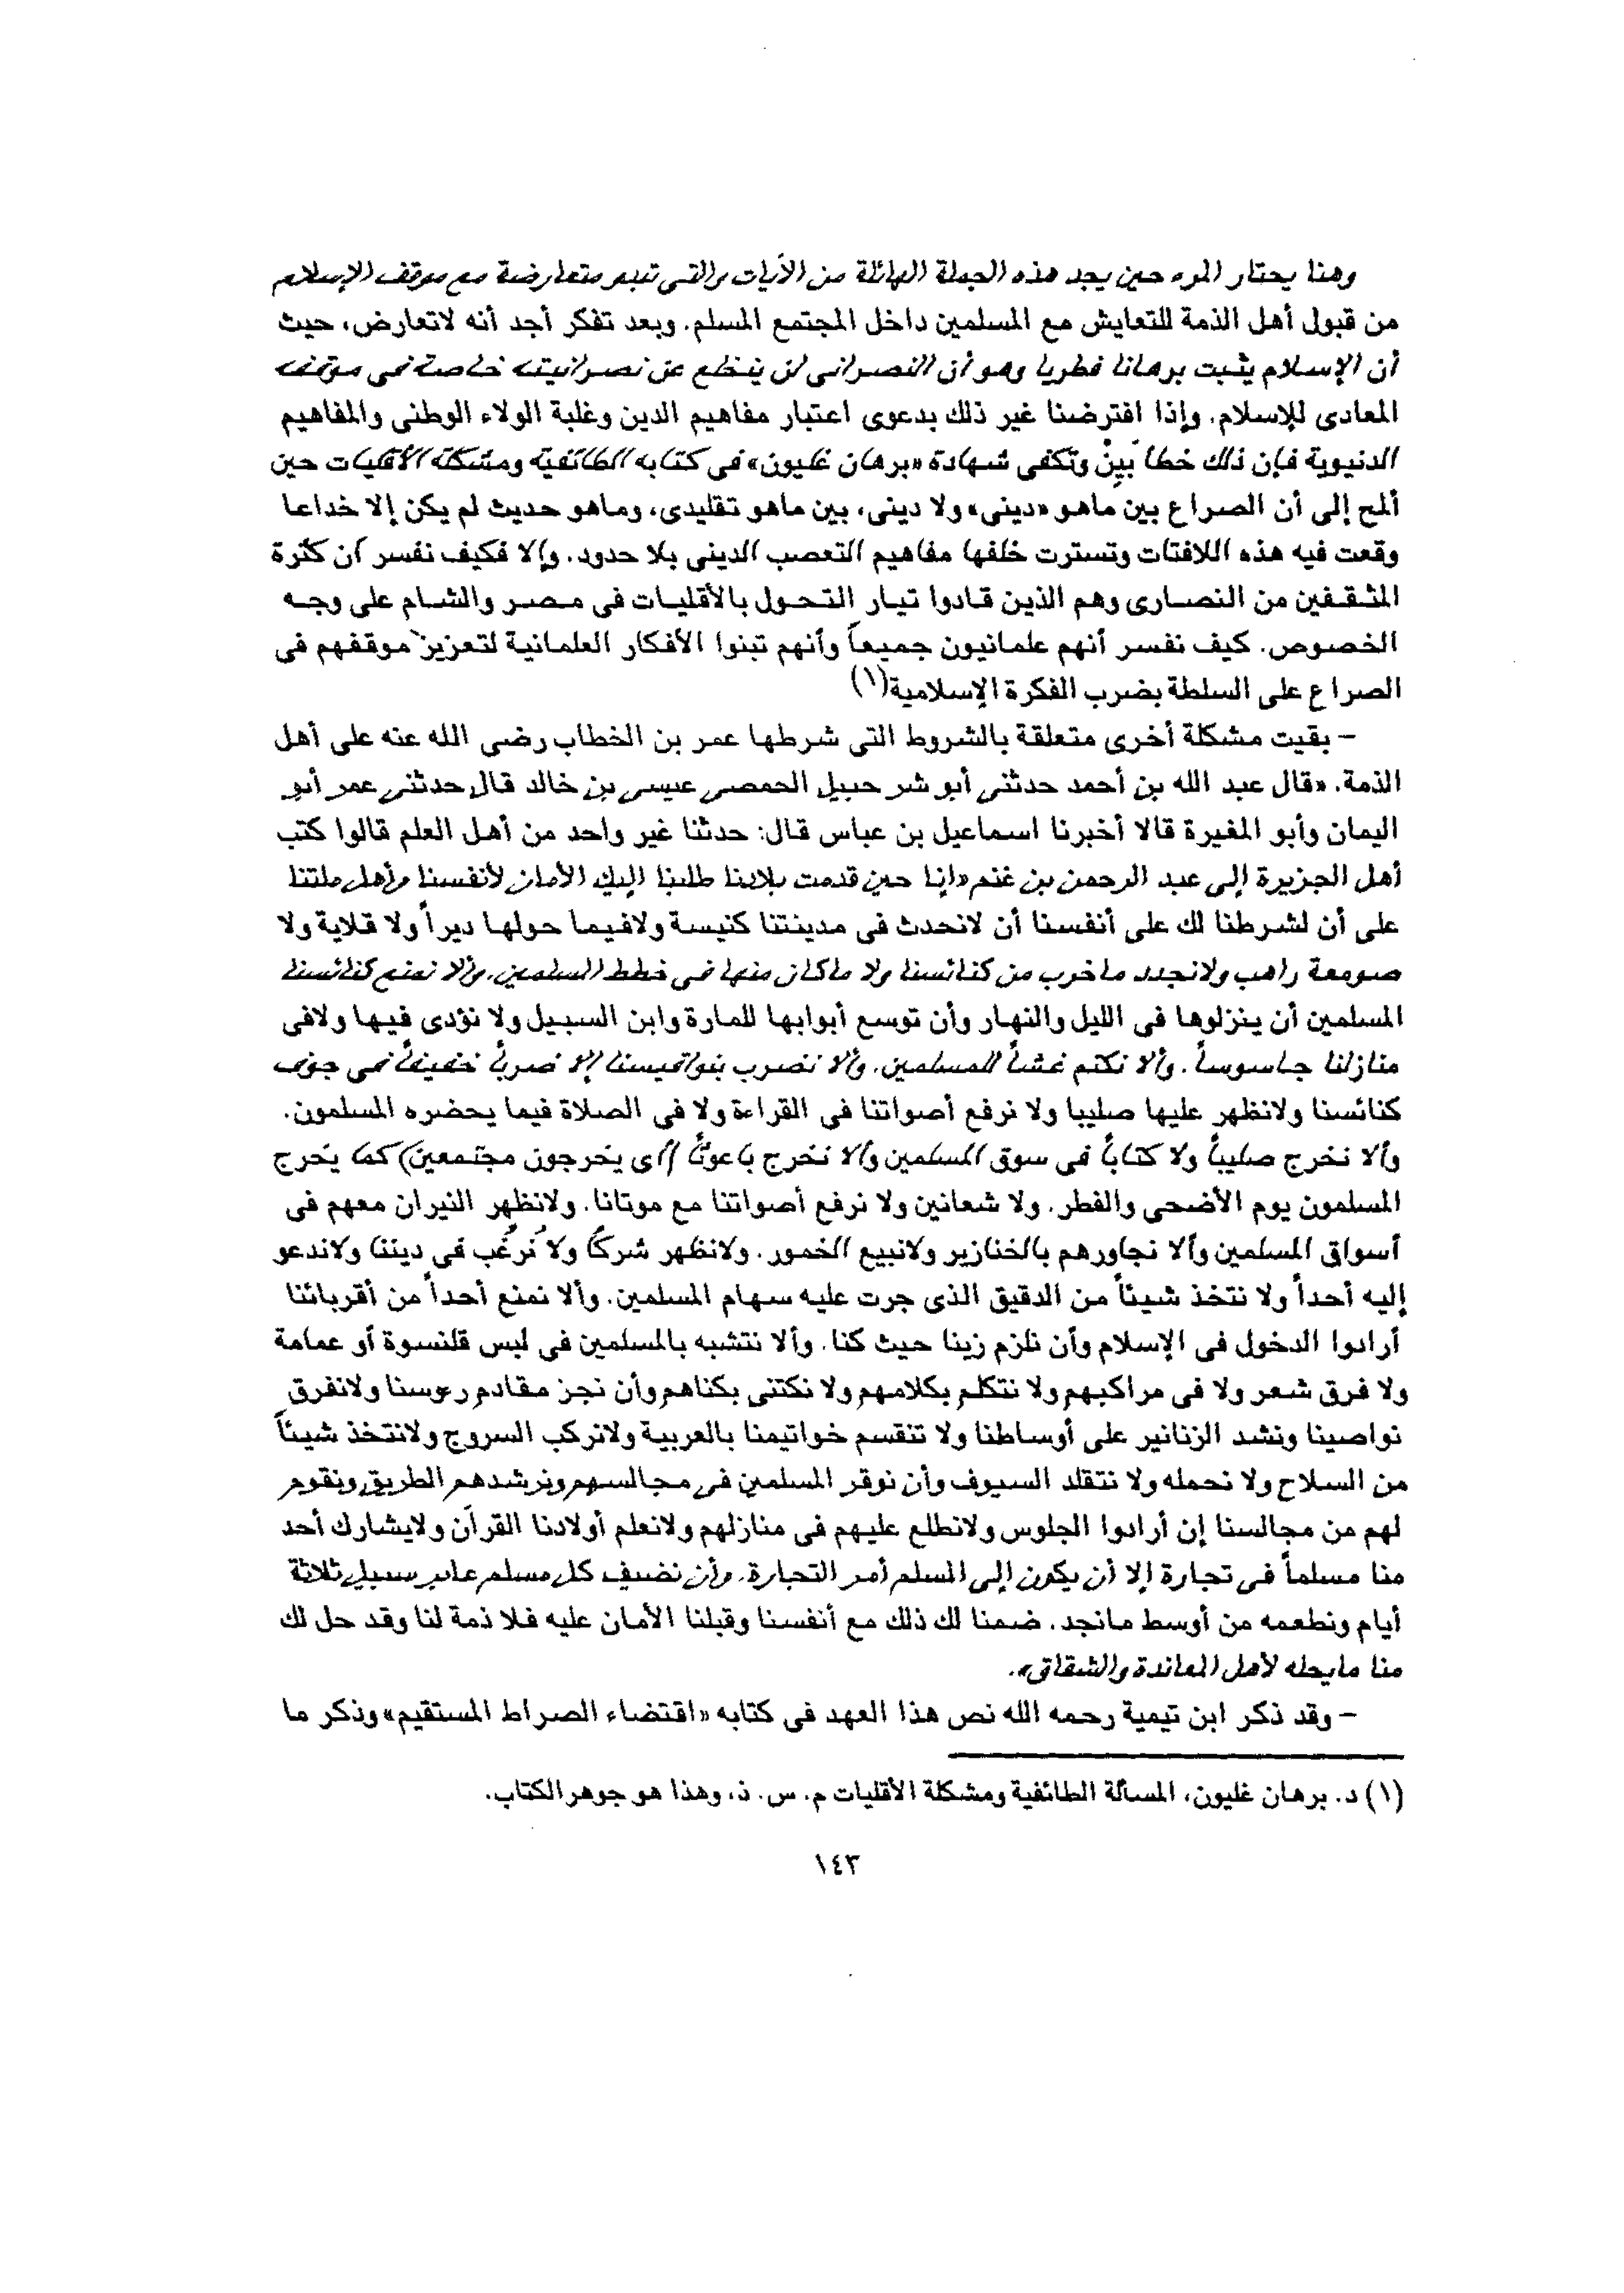 وهنا يحتار المرء حين يجد هذه الجملة الهائلة من الآيات والتى تبدو متعارضة مع موقف الإسلام
من قبول أهل الذمة للتعايش مع المسلمين داخل المجتمع المسلم. وبعد تفكر أجد أنه لاتعارض، حيث
أن الإسلام يثبت برهانا فطريا وهو أن النصرانى لن ينخلع عن نصرانيته خاصة فى موقفه
المعادى للإسلام. وإذا افترضنا غير ذلك بدعوى اعتبار مفاهيم الدين وغلبة الولاء الوطنى والمفاهيم
الدنيوية فإن ذلك خطأ بينٌ وتكفى شهادة «برهان غليون» فى كتابه الطائفية ومشكلة الأقليات حين
ألمح إلى أن الصراع بين ماهو «دينى» ولا دينى، بين ماهو تقليدى، وماهو حديث لم يكن إلا خداعا
وقعت فيه هذه اللافتات وتسترت خلفها مفاهيم التعصب الدينى بلا حدود. وإلا فكيف نفسر أن كثرة
المثقفين من النصارى وهم الذين قادوا تيار التحول بالأقليات فى مصر والشام على وجه
الخصوص. كيف نفسر أنهم علمانيون جميعاً وأنهم تبنوا الأفكار العلمانية لتعزيز موقفهم فى
الصراع على السلطة بضرب الفكرة الإسلامية(١)
– بقيت مشكلة أخرى متعلقة بالشروط التى شرطها عمر بن الخطاب رضى الله عنه على أهل
الذمة. «قال عبد الله بن أحمد حدثنى أبو شر حبيل الحمصى عيسى بن خالد قال حدثنى عمر أبو
اليمان وأبو المغيرة قالا أخبرنا اسماعيل بن عباس قال: حدثنا غير واحد من أهل العلم قالوا كتب
أهل الجزيرة إلى عبد الرحمن بن غنم «إنا حين قدمت بلادنا طلبنا إليك الأمان لأنفسنا وأهل ملتنا
على أن لشرطنا لك على أنفسنا أن لانحدث فى مدينتنا كنيسة ولافيما حولها ديراً ولا قلاية ولا
صومعة راهب ولانجدد ماخرب من كنائسنا ولا ماكان منها فى خطط المسلمين. وألا نمنع كنائسنا
المسلمين أن ينزلوها فى الليل والنهار وأن توسع أبوابها للمارة وابن السبيل ولا نؤدى فيها ولافى
منازلنا جاسوساً. وألا نكتم غشاً للمسلمين. وألا نضرب بنواقيسنا إلا ضرباً خفيفاً فى جوف
كنائسنا ولانظهر عليها صليبا ولا نرفع أصواتنا فى القراءة ولا فى الصلاة فيما يحضره المسلمون.
وألا نخرج صليباً ولا كتاباً فى سوق المسلمين وألا نخرج باعوثاً (أى يخرجون مجتمعين) كما يخرج
المسلمون يوم الأضحى والفطر. ولا شعانين ولا نرفع أصواتنا مع موتانا. ولانظهر النيران معهم فى
أسواق المسلمين وألا نجاورهم بالخنازير ولانبيع الخمور. ولانظهر شركاً ولا نُرغِّب فى ديننا ولاندعو
إليه أحداً ولا نتخذ شيئاً من الدقيق الذى جرت عليه سهام المسلمين. وألا نمنع أحداً من أقربائنا
أرادوا الدخول فى الإسلام وأن نلزم زينا حيث كنا. وألا نتشبه بالمسلمين فى لبس قلنسوة أو عمامة
ولا فرق شعر ولا فى مراكبهم ولا نتكلم بكلامهم ولا نكتنى بكناهم وأن نجز مقادم رءوسنا ولانفرق
نواصينا ونشد الزنانير على أوساطنا ولا تنقسم خواتيمنا بالعربية ولانركب السروج ولانتخذ شيئاً
من السلاح ولا نحمله ولا نتقلد السيوف وأن نوقر المسلمين فى مجالسهم ونرشدهم الطريق ونقوم
لهم من مجالسنا إن أرادوا الجلوس ولانطلع عليهم فى منازلهم ولانعلم أولادنا القرآن ولايشارك أحد
منا مسلماً فى تجارة إلا أن يكون إلى المسلم أمر التجارة. وأن نضيف كل مسلم عابر سبيل ثلاثة
أيام ونطعمه من أوسط مانجد. ضمنا لك ذلك مع أنفسنا وقبلنا الأمان عليه فلا ذمة لنا وقد حل لك
منا مايحله لأهل المعاندة والشقاق».
– وقد ذكر ابن تيمية رحمه الله نص هذا العهد فى كتابه «اقتضاء الصراط المستقيم» وذكر ما
(١) د. برهان غليون، المسألة الطائفية ومشكلة الأقليات م. س. ذ، وهذا هو جوهر الكتاب.
١٤٣